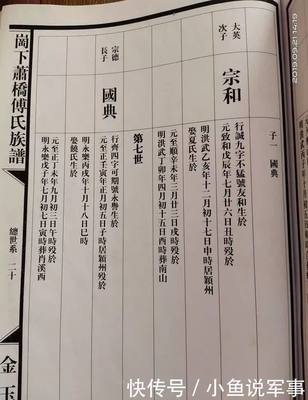 大英
次子
宗和
子一 國典
行誠九字不猛號友和生於
元致和戊辰年七月廿六日丑時歿於
明洪武乙亥年十二月初十七日申時居潁州
娶夏氏生於
元至順辛未年三月廿三日戌時歿於
明洪武丁卯年四月初十五日酉時葬南山
第七世
宗德
長子
國典
行齊四字可期號永譽生於
元至正壬年正月初五日子時居潁州歿於
明永樂丙戌年十月十八日巳時
娶饒氏生於
元至正丁未年九月初三日午時歿於
明永樂戊子年七月初七日寅時葬肖溪西
崗下蕭橋傅氏族譜
總世系 二十
金玉
快传号 / 小鱼说军事